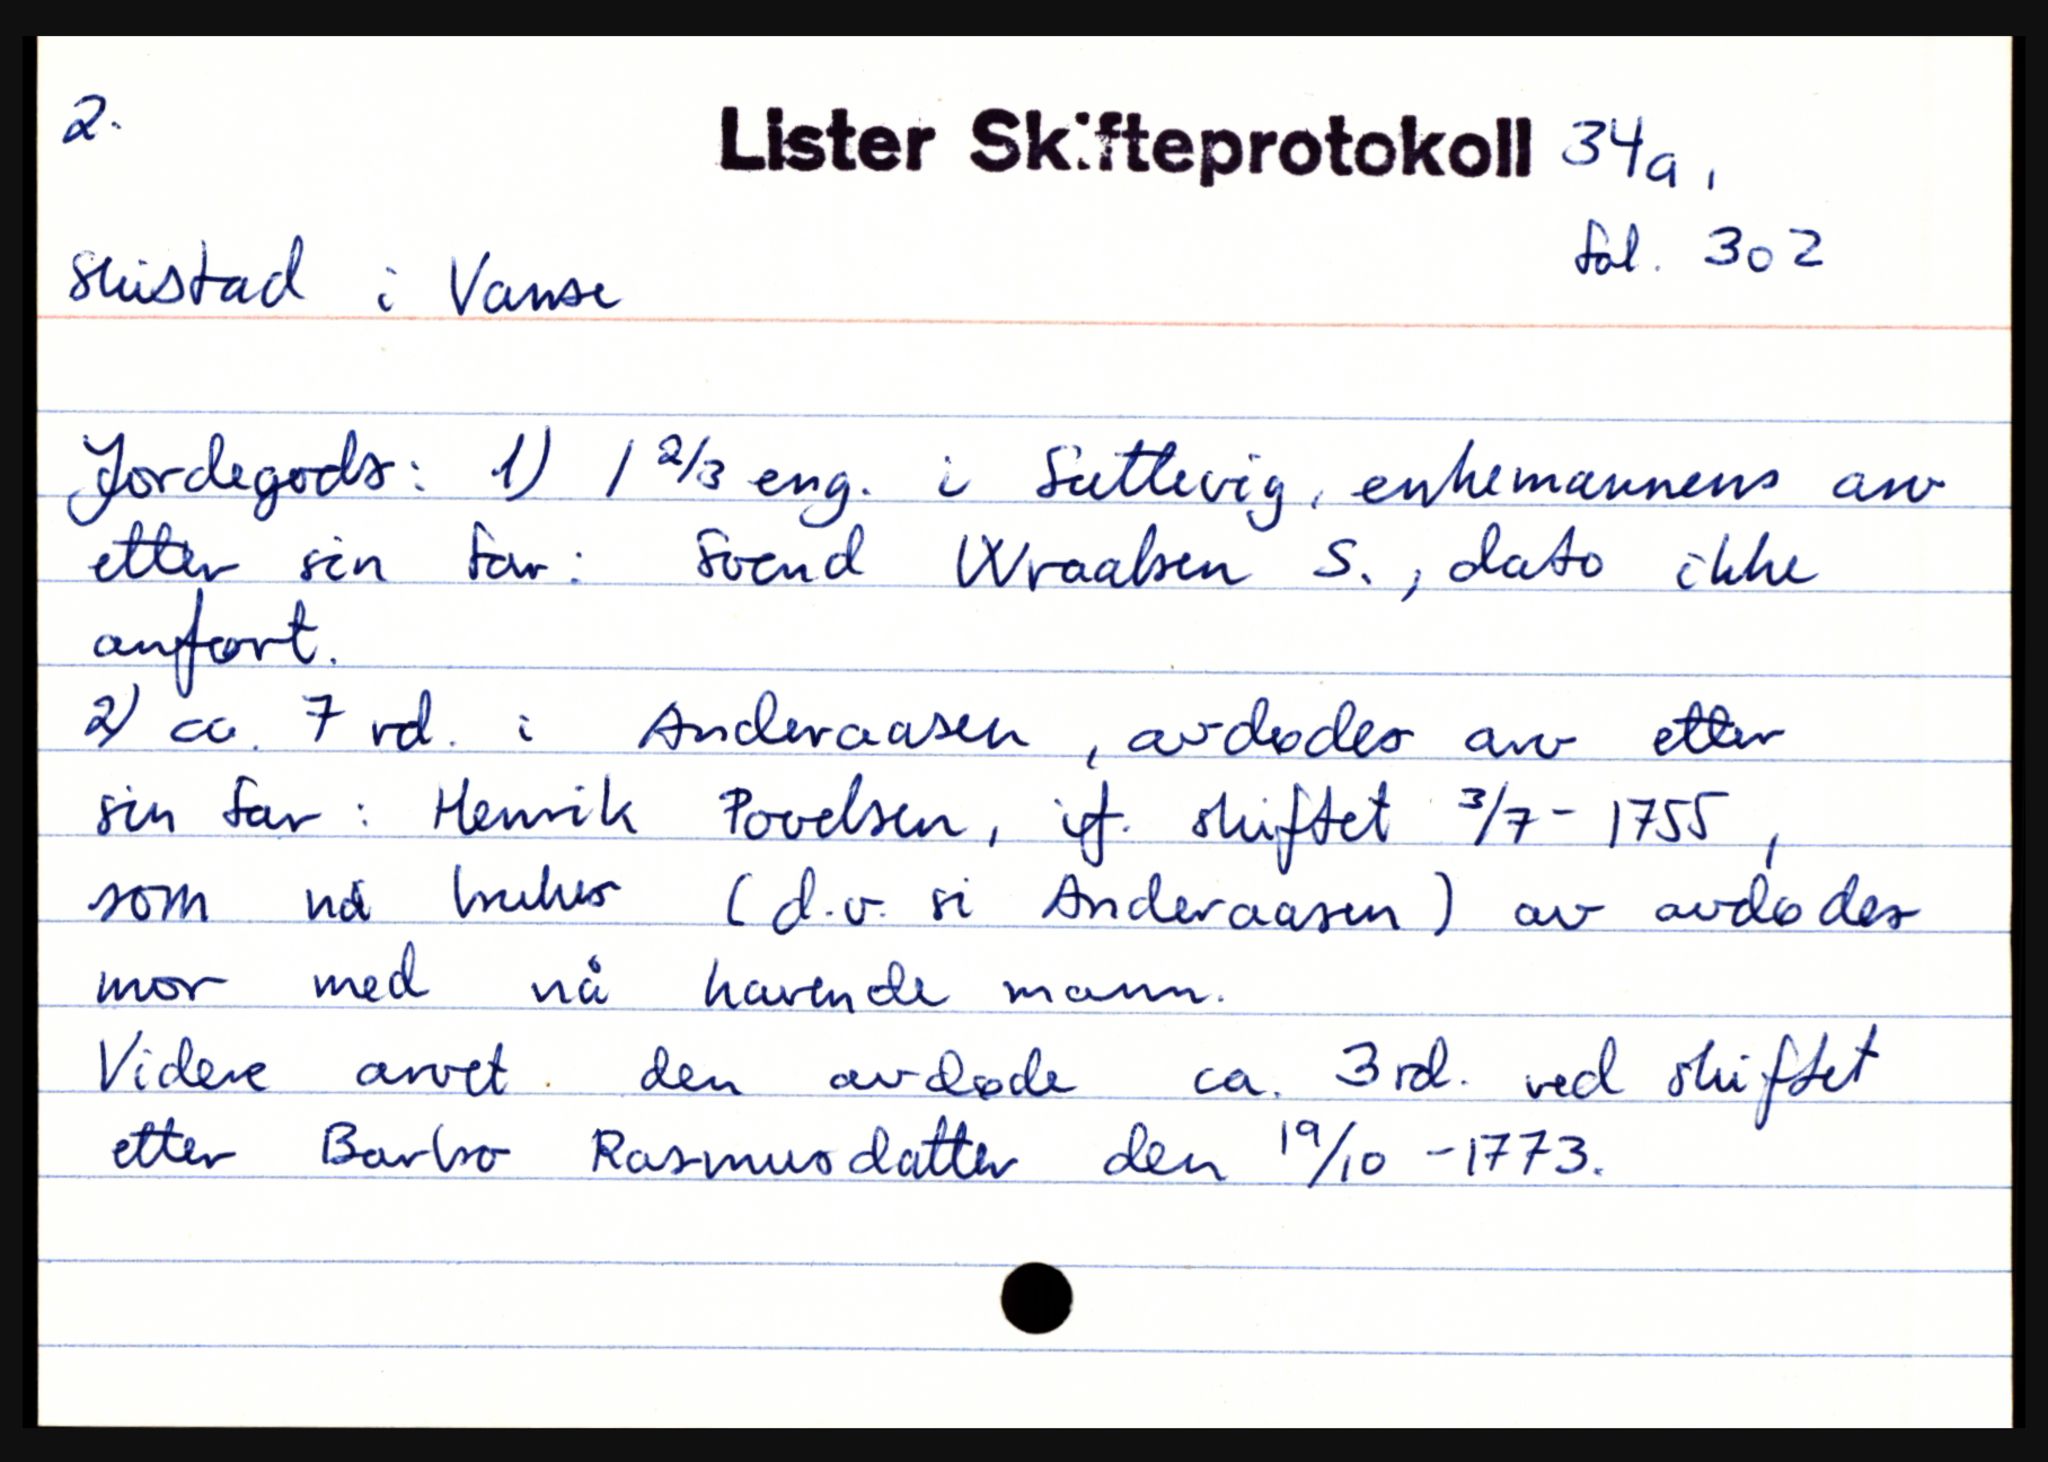 2.
Lister Skifteprotokoll 34a,
fol. 302
Skistad i Vanse
Jordegods: 1) 1 2/3 eng. i Sættevig, enkemannens arv
etter sin far: Svend Wraalsen S., dato ikke
anført.
2) ca. 7 rd. i Anderaasen, avdødes arv etter
sin far: Henrik Povelsen, if. skiftet 3/7 - 1755,
som nå brukes (d.v. si Anderaasen) av avdødes
mor med nå havende mann.
Videre arvet den avdøde ca. 3 rd. ved skiftet
etter Barbro Rasmusdatter den 19/10 - 1773.